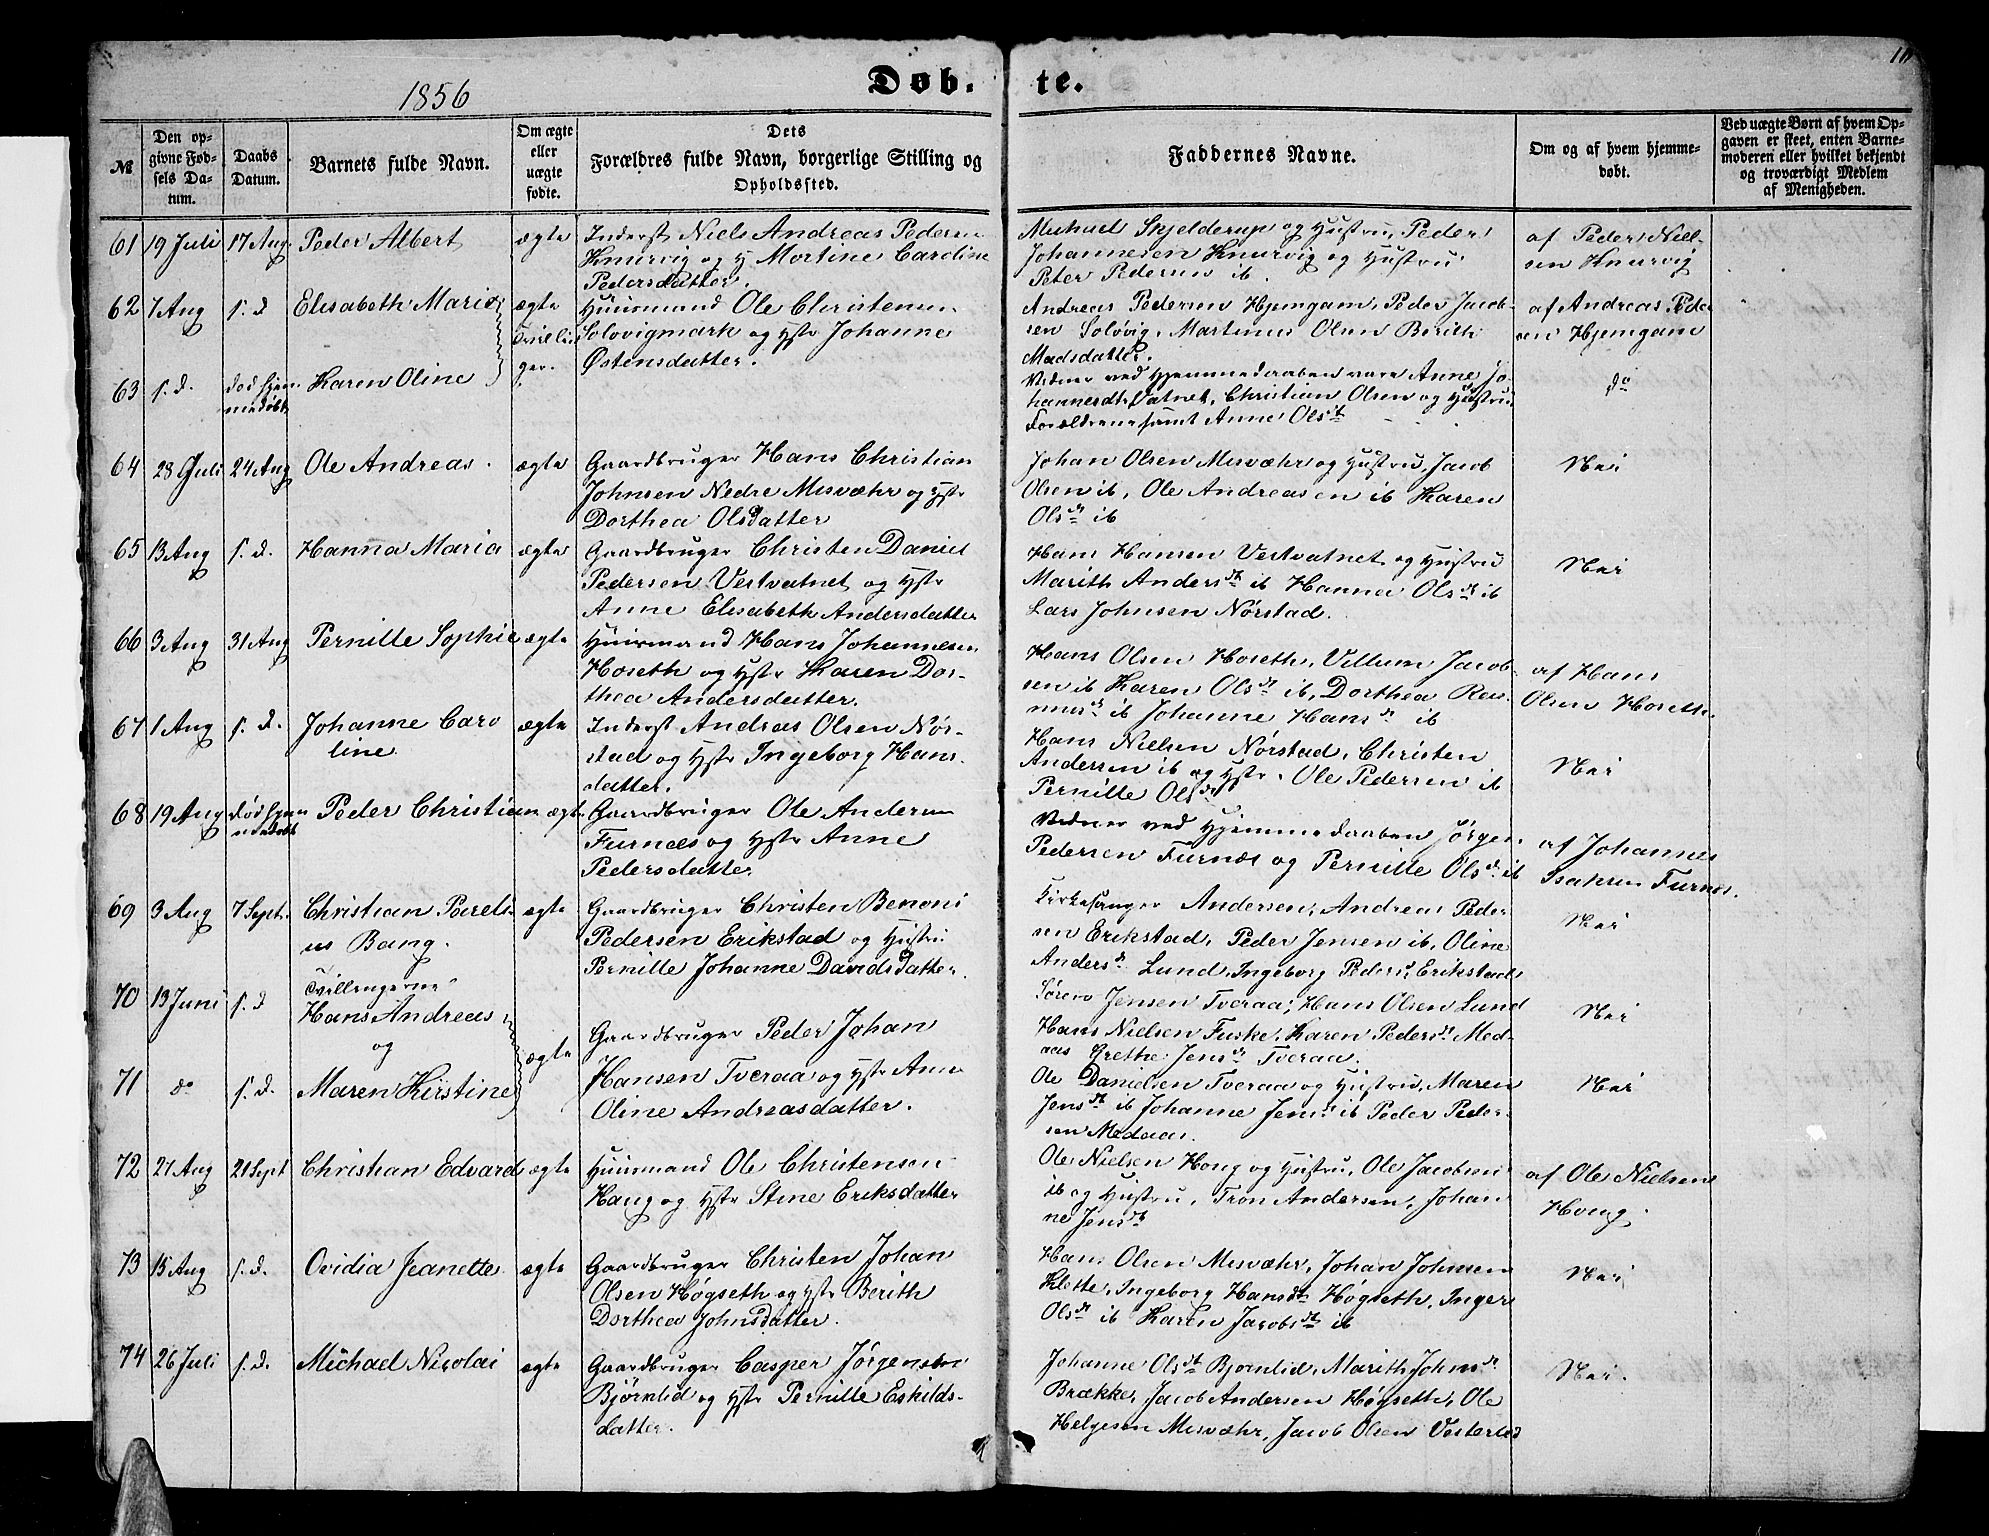 1856
Døb-
te.
№
Den op-
givne Fød-
sels Da-
tum.
Daabs
Datum.
Barnets fulde Navn.
Om ægte
eller
uægte
fødte.
Dets
Forældres fulde Navn, borgerlige Stilling og
Opholdssted.
Faddernes Navne.
Om og af hvem hjemme-
døbt.
Ved uægte Børn af hvem Op-
gaven er skeet, enten Barne-
moderen eller hvilket bekjendt
og troværdigt Medlem
af Menigheden.
61 19 Juli 17 Aug. Peder Albert ægte Inderst Niels Andreas Pedersen
Knurvig og H Mortine Caroline
Pedersdatter.
Michael Skjelderup og Hustru, Peder
Johannesen Knurvig og Hustru
Peter Pedersen ib
af Peder Niel-
sen Knurvig
62 7 Aug s. d Elisabeth Maria ægte Huusmand Ole Christensen
Solovigmark og Hstr Johanne
Østensdatter.
Andreas Pedersen Hjemgam, Peder Jacob-
sen Solovig, Martinus Olsen Berith
Madsdatter.
af Andreas Peder
sen Hjemgam
63 s. d. død hjem-
medøbt Karen Oline
Vidner ved Hjemmedaaben vare Anne Jo-
hannesdt Vatnet, Christian Olsen og Hustru
Forældrene samt Anne Olsdt
do
64 28 Juli 24 Aug Ole Andreas. ægte Gaardbruger Hans Christian
Johnsen Nedre Misvæhr og Hstr
Dorthea Olsdatter
Johan Olsen Misvæhr og Hustru, Jacob
Olsen ib, Ole Andreasen ib Karen
Olsdt ib
Nei
65 13 Aug s. d. Hanna Maria ægte Gaardbruger Christen Daniel
Pedersen Vestvatnet og Hstr
Anne Elisabeth Andersdatter
Hans Hansen Vestvatnet og Hustru
Marith Andersdt ib Hanna Olsdt ib
Lars Johnsen Nørstad.
Nei
66 3 Aug 31 Aug Pernille Sophie ægte Huusmand Hans Johannesen
Hoseth og Hstr Karen Dor-
thea Andersdatter.
Hans Olsen Hoseth, Villum Jacob-
sen ib Karen Olsdt ib, Dorthea Ras-
musdt ib Johanne Hansdt ib
af Hans
Olsen Hoseth.
67 1 Aug s. d. Johanne Caro
line ægte Inderst Andreas Olsen Nør-
stad og Hstr Ingeborg Hans-
datter.
Hans Nielsen Nørstad, Christen
Andersen ib og Hstr. Ole Pedersen ib
Pernille Olsdt
Nei
68 19 Aug død hjem
medøbt Peder Christian ægte Gaardbruger Ole Andersen
Furnæs og Hstr Anne
Pedersdatter
Vidner ved Hjemmedaaben Jørgen
Pedersen Furnæs og Pernille Olsdt ib
af Johannes
Isaksen Furnes.
69 3 Aug 7 Sept. Christian Parels-
us Bang. ægte Gaardbruger Christen Benoni
Pedersen Erikstad og Hustru
Pernille Johanne Davidsdatter.
Kirkesanger Andersen, Andreas Peder
sen Erikstad, Peder Jensen ib, Oline
Andersdt Lund, Ingeborg Pedersdt Erikstad
Nei
70 13 Juni s. d Tvillingerne
Hans Andreas
og
ægte Gaardbruger Peder Johan
Hansen Tveraa og Hstr Ane
Oline Andreasdatter.
Søren Jensen Tveraa, Hans Olsen Lund
Hans Nielsen Fuske, Karen Pedersdt Med-
aas Grethe Jensdt Tveraa.
Nei
71 do s. d. Maren Kirstine
Ole Danielsen Tveraa og Hustru, Maren
Jensdt ib Johanne Jensdt ib Peder Peder-
sen Medaas.
Nei
72 27 Aug 21 Sept Christian Edvard ægte Huusmand Ole Christensen
Haug og Hstr Stine Eriksdatter
Ole Nielsen Houg og Hustru, Ole Jacobsen
ib og Hustru, Tron Andersen, Johan
ne Jensdt
af Ole Nielsen
Houg.
73 15 Aug s. d. Ovidia Jeanette ægte Gaardbruger Christen Johan
Olsen Høgseth og Hstr Berith
Dorthea Johnsdatter.
Hans Olsen Misvæhr, Johan Johnsen
Klette, Ingeborg Hansdt Høgseth, Inger
Olsdt ib Karen Jacobsdt ib
Nei
74 26 Juli s. d. Michael Nicolai ægte Gaardbruger Casper Jørgensen
Bjørnlid og Hstr Pernille Eskilds-
datter.
Johanne Olsdt Bjørnlid, Marith Johnsdt
Brække, Jacob Andersen Høgseth, Ole
Helgesen Misvæhr, Jacob Olsen Vesterlid
Nei.